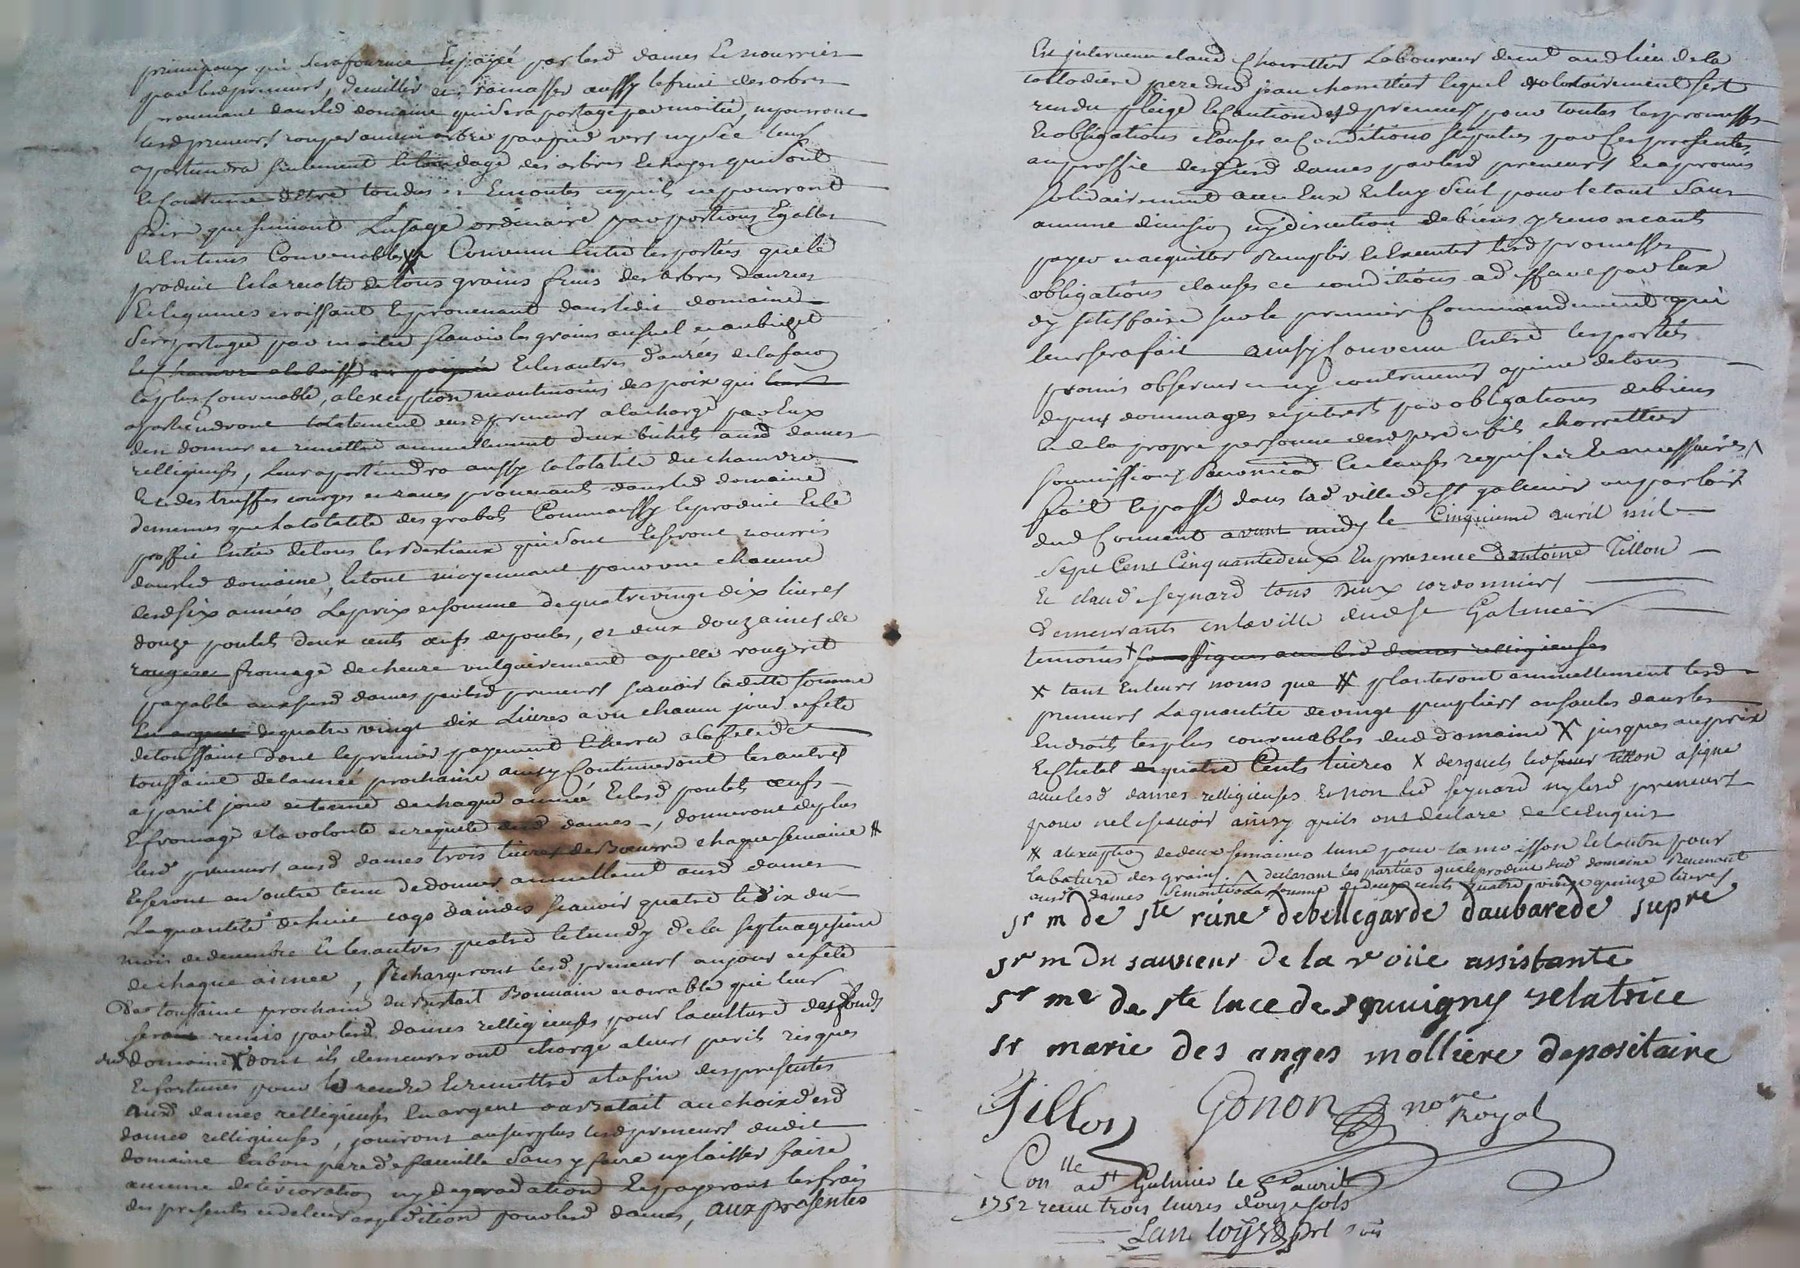 principaux qui sera fournie et payé par lesd dames et nourries
par lesd preneurs, de veiller et ramasser aussy le fruit des arbres
provenant dans led domaine qui sera partagé par moitié, ny pourront
lesd preneurs couper aucun arbre par pied vert ny sec leurs
apartiendra seulement le tondage des arbres et hayes qui sont
de coutume d'etre tondus et emontés ce qu'ils ne pourront
faire que suivant l'usage ordinaire par portions Egalles
et en tems Convenables Convenu Entre les parties que le
produit et la recolte de tous grains fruis des arbres danrées
Et legumes croissant et provenant dans ledit domaine
Sera partagée par moitié scavoir les grains
Et les autres danrées de la facon
la plus Convenable, a l'exception neantmoins des poix qui
apartiendront totalement ausd preneurs a la charge par Eux
den donner et remettre annuellement deux bichets ausd dames
relligieuses, leur apartiendra aussy la totalité du chanvre
Et des truffes courges et raves provenant dans led domaine
de memes que la totalité des grabots Comm'aussy le produit et le
proffit Entier de tous les Bestiaux qui sont et seront nourris
dans led domaine, le tout moyennant pour une chacune
desd six années Le prix et somme de quatre vingt dix livres
douze poulets deux cents œufs de poules, et deux douzaines de
fromage de chevre vulgairement apellé rougeret
payable auxsusd dames par lesd preneurs scavoir ladette somme
de quatre vingt dix Livres a un chacun jour et fete
de toussaint dont le premier payement Echerra a la fete de
toussaint de l'année prochaine ainsy Continueront les autres
a pareil jour et terme de chaque année Et lesd poulets œufs
Et fromage a la volonté et requete ausd dames, donneront de plus
lesd preneurs ausd dames trois livres de Beurre chaque semaine #
Et seront en outre tenu de donner annuellement ausd dames
La quantité de huit coqs daindes scavoir quatre le dix du
mois de decembre Et les autres quatre le lundy de la septuagesime
de chaque année, Se chargeront lesd preneurs au jour et fete
De toussaint prochain du Bestail Bouvain et arable qui leur
sera remis par lesd dames relligieuses pour la culture des fonds
dud domaine X dont ils demeureront charge a leurs perils risques
Et fortunes pour le rendre Et remettre a la fin des presentes
ausd dames relligieuses En argent ou Bestail au choix desd
dames relligieuses, jouiront au surplus lesd preneurs dudit
domaine En bon pere de famille Sans y faire ny laisser faire
aucune deterioration ny degradation Et payeront les frais
des presentes et de leur expedition pour lesd dames, aux presentes
Est intervenu claud Charretier Laboureur dem.t aud lieu de la
pere dud jean charretier lequel volontairement s'est
rendu pleige et caution desd preneurs pour toutes les promesses
Et obligations clauses et Conditions stipulées par ces presentes
au proffit desd susd dames par lesd preneurs Et a promis
solidairement avec Eux Et luy seul pour le tout Sans
aucune division ny discution de biens y renoncant
payer et acquitter Remplir Et Executer lesd promesses
obligations clauses et conditions a deffaut par Eux
d'y satisfaire sur le premier Commandement qui
leur sera fait ainsy Convenu Entre les parties
promis observer et ny contrevenir a peine de tous
depens dommages et interets par obligations de biens
et de la propre personne desd pere et fils charretier
soumissions Renonciaōns Et clauses requises Et necessaires
fait et passé dans lad ville de St galmier au parloir
dud Couvent avant midy le Cinquieme avril mil
Sept Cent Cinquante deux En presence d'antoine Tillon
Et claud seynard tous Deux cordonniers
demeurants en la ville dud St Galmier
temoins X
X tant En leurs noms que # planteront annuellement lesd
preneurs La quantité de vingt peupliers ou saules dans les
Endroits les plus convenables dud domaine X jusques au prix
Et Cheptel de quatre Cents livres X desquels led sieur tillon a signé
avec lesd dames relligieuses Et non led seynard ny lesd preneurs
pour ne le scavoir ainsy qu'ils ont declaré de ce Enquis
# a l'exception de deux semaines lune pour la moisson et l'autre pour
la bature des grains. declarant les parties que le produit dud domaine Revenant
ausd dames se monte a la somme de deux cents quatre vingt quinze livres
sr m de ste reine debellegarde daubarede supre
sr m du sauveur de la roüe assistante
sr me de ste luce de souvigny relatrice
sr marie des anges molliere depositaire
Tillon Gonon nore Royal
Conlle a St Galmier le 5e avril
1752 receu trois livres douze sols